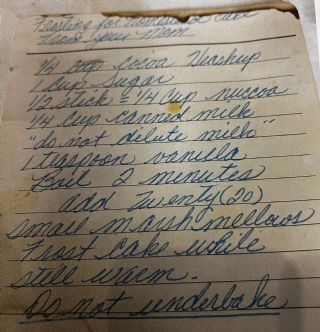 Frosting for Homemade Cake
from your Mom
1/4 cup cocoa Hershup
1 Cup Sugar
1/2 stick = 1/4 Cup nuccoa
1/4 Cup canned milk
"do not dilute milk"
1 teaspoon vanilla
Boil 2 minutes
add Twenty (20)
small marsh mellows
Frost cake while
still warm.
Do not underbake